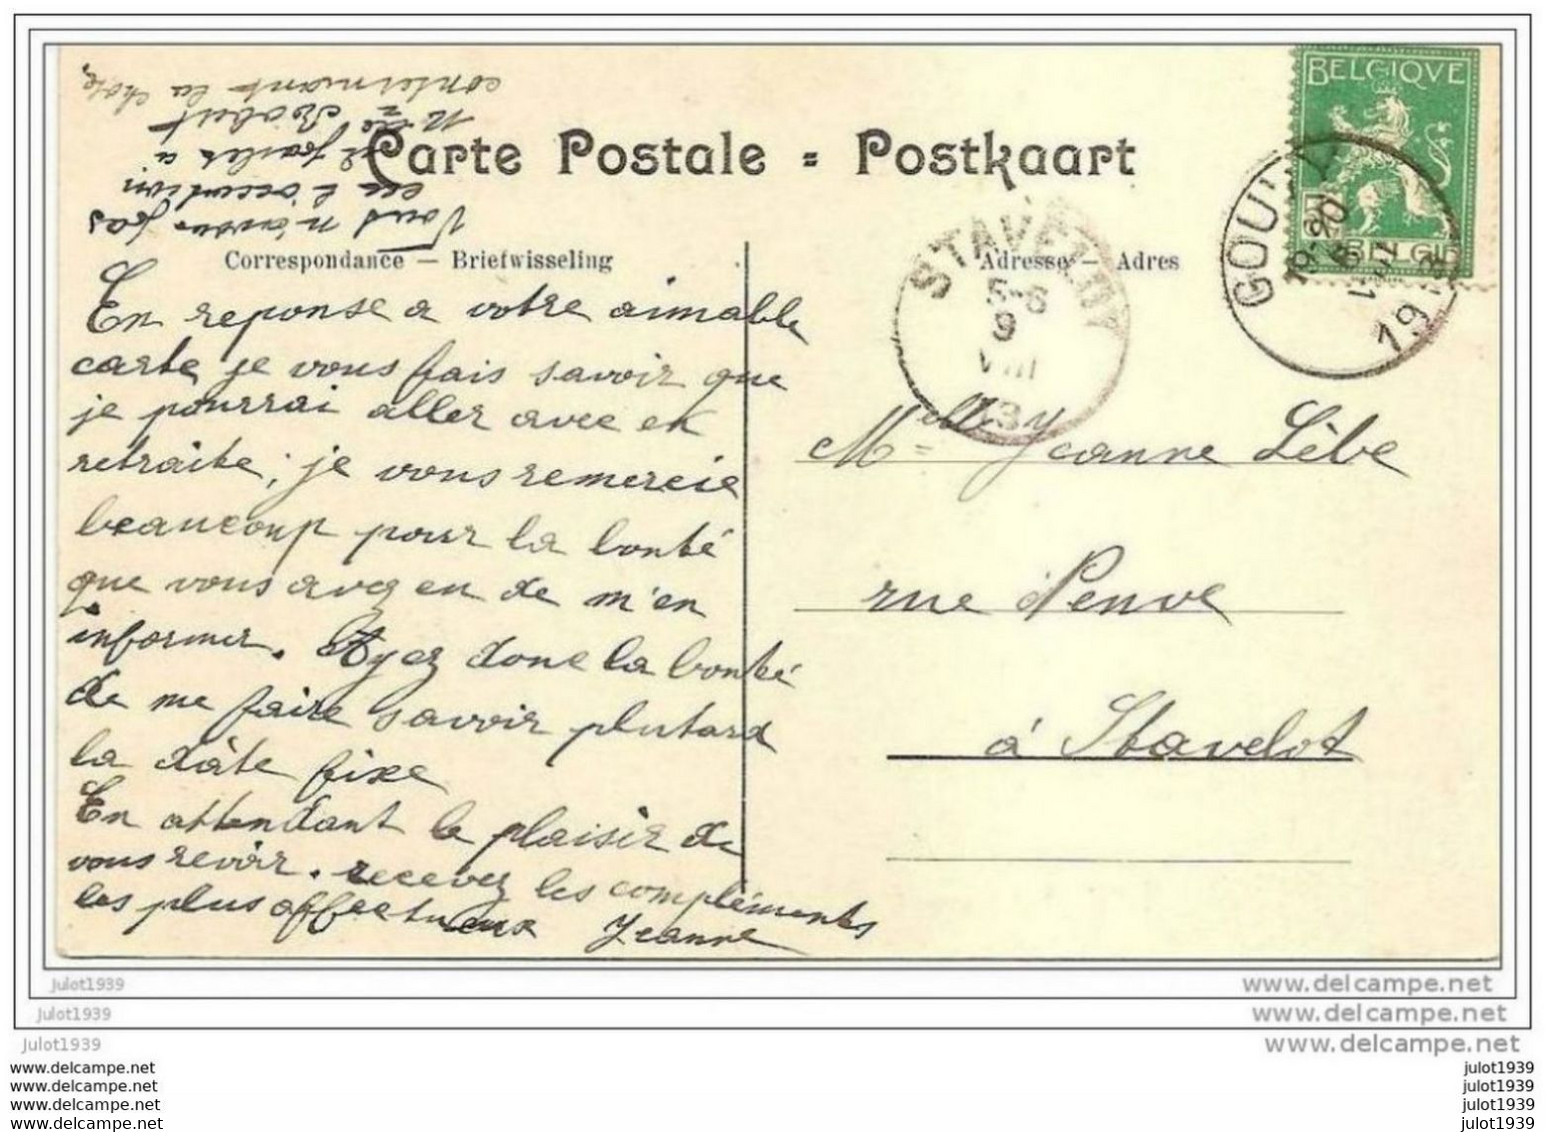 BELGIQVE
BELGIE
Carte Postale = Postkaart
Correspondance — Briefwisseling
Adresse — Adres
GOUVY
19-20
8
VIII
19
STAVELOT
5-6
9
VIII
13
Vous n'avons pas
eu l'occasion
de parler à
Mr Robert
concernant la chose
En reponse a votre aimable
carte, je vous fais savoir que
je pourrai aller avec en
retraite; je vous remercie
beaucoup pour la bonté
que vous avez eu de m'en
informer. Ayez donc la bonté
de me faire savoir plutard
la dâte fixe
En attendant le plaisir de
vous revoir. recevez les compléments
les plus affectueux Jeanne
Melle Jeanne Lèbe
rue Neuve
á Stavelot
julot1939
www.delcampe.net
julot1939
www.delcampe.net
julot1939
www.delcampe.net
www.delcampe.net
julot1939
www.delcampe.net
julot1939
www.delcampe.net
julot1939
www.delcampe.net
julot1939